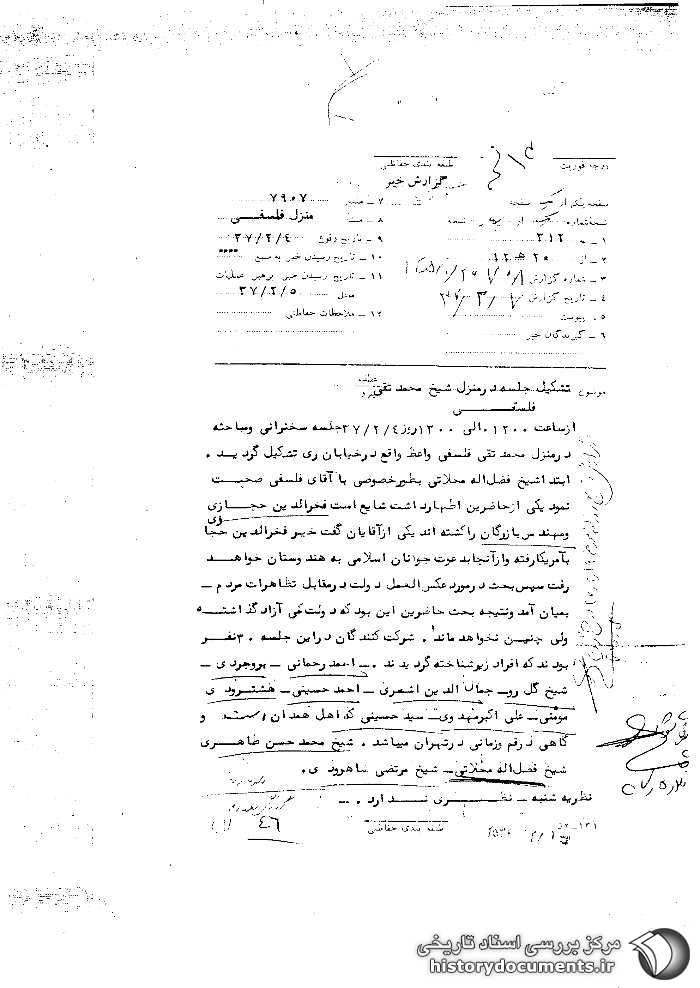 درجه فوریت
طبقه بندی حفاظتی
گزارش خبر
صفحه یکم از یک صفحه
نسخه شماره از نسخه
۱ ـ به ۳۱۲
۲ ـ از ۲۰ ه‍ ۱۲
۳ ـ شماره گزارش
۴ ـ تاریخ گزارش
۵ ـ پیوست
۶ ـ گیرندگان خبر
۷ ـ منبع ۷۹۰۷
۸ ـ منشأ منزل فلسفی
۹ ـ تاریخ وقوع ۳۷/۲/۴
۱۰ ـ تاریخ رسیدن خبر به منبع
۱۱ ـ تاریخ رسیدن خبر برهبر عملیات
محل ۳۷/۲/۵
۱۲ ـ ملاحظات حفاظتی
موضوع تشکیل جلسه در منزل شیخ محمد تقی
فلسفی
از ساعت ۱۲۰۰ الی ۱۳۰۰ روز ۳۷/۲/۴ جلسه سخنرانی ومباحثه
در منزل محمد تقی فلسفی واعظ واقع در خیابان ری تشکیل گردید .
ابتدا شیخ فضل اله محلاتی بطور خصوصی با آقای فلسفی صحبت
نمود یکی از حاضرین اظهار داشت شایع است فخرالدین حجازی
ومهندس بازرگان را کشته اند یکی از آقایان گفت خیر فخرالدین حجازی
بآمریکا رفته واز آنجا بدعوت جوانان اسلامی به هندوستان خواهد
رفت سپس بحث در مورد عکس العمل دولت در مقابل تظاهرات مردم ـ
بمیان آمد ونتیجه بحث حاضرین این بود که دولت کمی آزاد گذاشته
ولی چنین نخواهد ماند . شرکت کنندگان در این جلسه ۳۰ نفر
بودند که افراد زیر شناخته گردیدند . ـ احمد رحمانی ـ بروجردی ـ
شیخ گل رو ـ جمال الدین اشعری ـ احمد حسینی ـ هشترودی
مومنی ـ علی اکبر مهدوی ـ سید حسینی که اهل همدان است و
گاهی در قم وزمانی در تهران میباشد . شیخ محمد حسن طاهری
شیخ فضل اله محلاتی ـ شیخ مرتضی شاهرودی .
نظریه شنبه ـ نظری ندارد . ـ
۴۶
طبقه بندی حفاظتی
مرکز بررسی اسناد تاریخی
historydocuments.ir